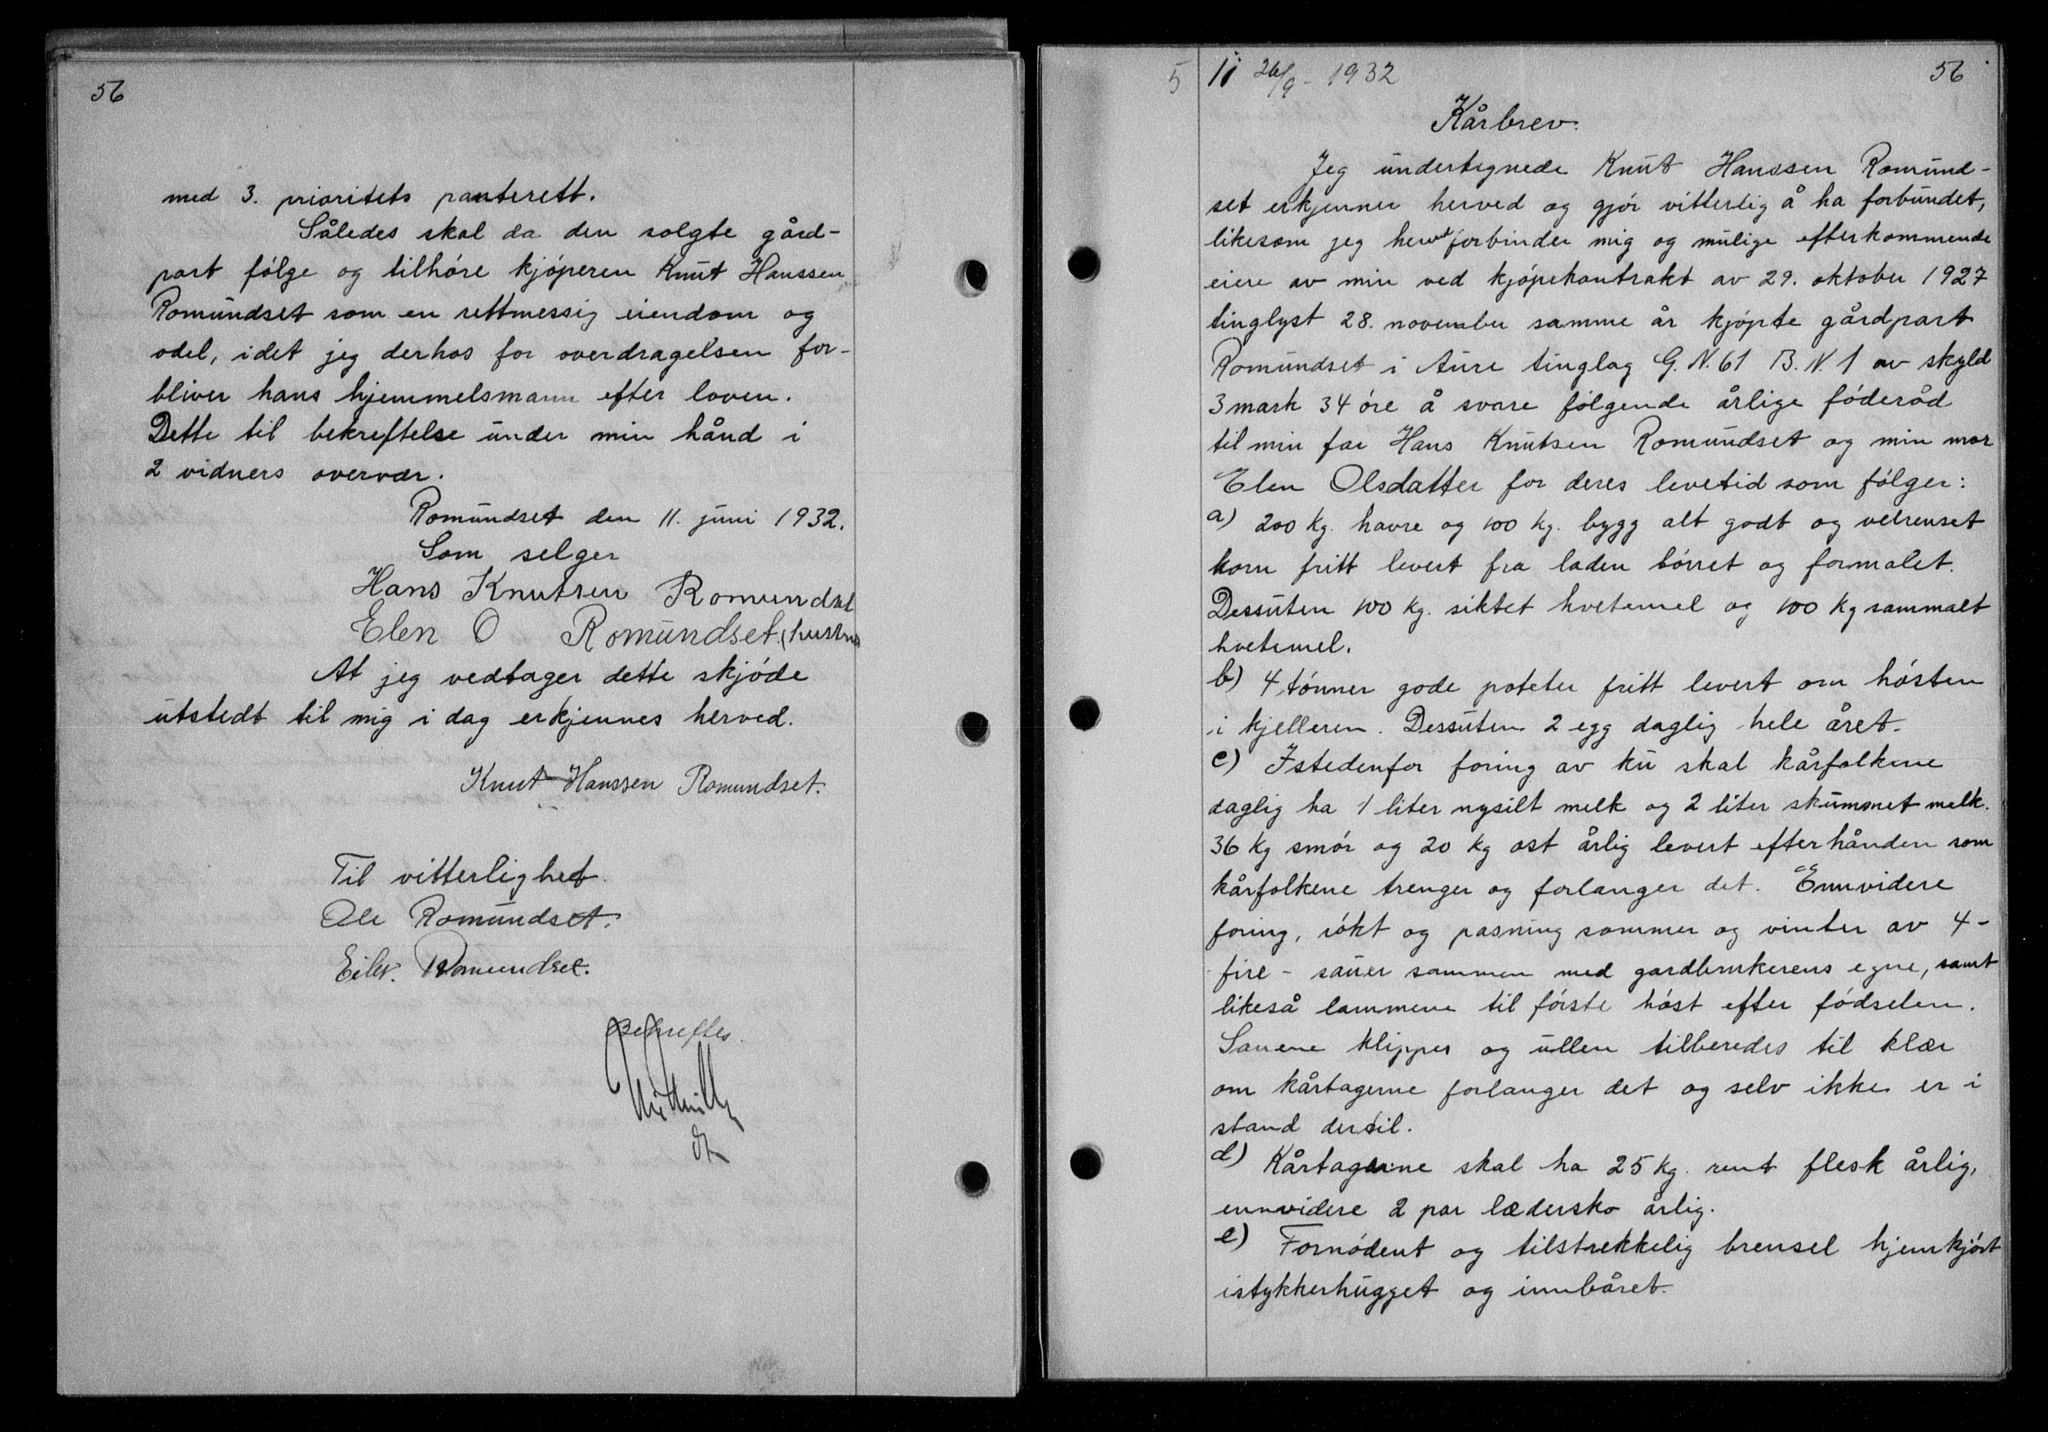 56
med 3. prioritets panterett.
Således skal da den solgte gård-
part følge og tilhøre kjøperen Knut Hanssen
Romundset som en rettmessig eiendom og
odel, idet jeg derhos for overdragelsen for-
bliver hans hjemmelsmann efter loven.
Dette til bekreftelse under min hånd i
2 vidners overvær.
Romundset den 11. juni 1932.
Som selger
Hans Knutsen Romundset
Elen O Romundset. (hustru
At jeg vedtager dette skjøde
utstedt til mig i dag erkjennes herved.
Knut Hanssen Romundset.
Til vitterlighet.
Ole Romundset.
Eilev. Romundset.
Bekreftes.
5 11 26/9 - 1932 56
Kårbrev.
Jeg undertegnede Knut Hanssen Romund-
set erkjenner herved og gjør vitterlig å ha forbundet,
likesom jeg herved forbinder mig og mulige efterkommende
eiere av min ved kjøpekontrakt av 29. oktober 1927
tinglyst 28. november samme år kjøpte gårdpart
Romundset i Aure tinglag G. N. 61 B. N. 1 av skyld
3 mark 34 øre å svare følgende årlige føderåd
til min far Hans Knutsen Romundset og min mor
Elen Olsdatter for deres levetid som følger:
a) 200 kg. havre og 100 kg. bygg alt godt og velrenset
korn fritt levert fra laden tørret og formalet.
Dessuten 100 kg. siktet hvetemel og 100 kg sammalt
hvetemel.
b) 4 tønner gode poteter fritt levert om høsten
i kjelleren. Dessuten 2 egg daglig hele året.
c) Istedenfor foring av ku skal kårfolkene
daglig ha 1 liter nysilt melk og 2 liter skummet melk.
36 kg smør og 20 kg ost årlig levert efterhånden som
kårfolkene trenger og forlanger det. Ennvidere
foring, røkt og pasning sommer og vinter av 4-
fire - sauer sammen med gardbrukerens egne, samt
likeså lammene til første høst efter fødselen.
Sauene klippes og ullen tilberedes til klær
om kårtagerne forlanger det og selv ikke er i
stand dertil.
d) Kårtagerne skal ha 25 kg. rent flesk årlig,
ennvidere 2 par lædersko årlig.
e) Fornødent og tilstrekkelig brensel hjemkjørt
istykkerhugget og innbåret.